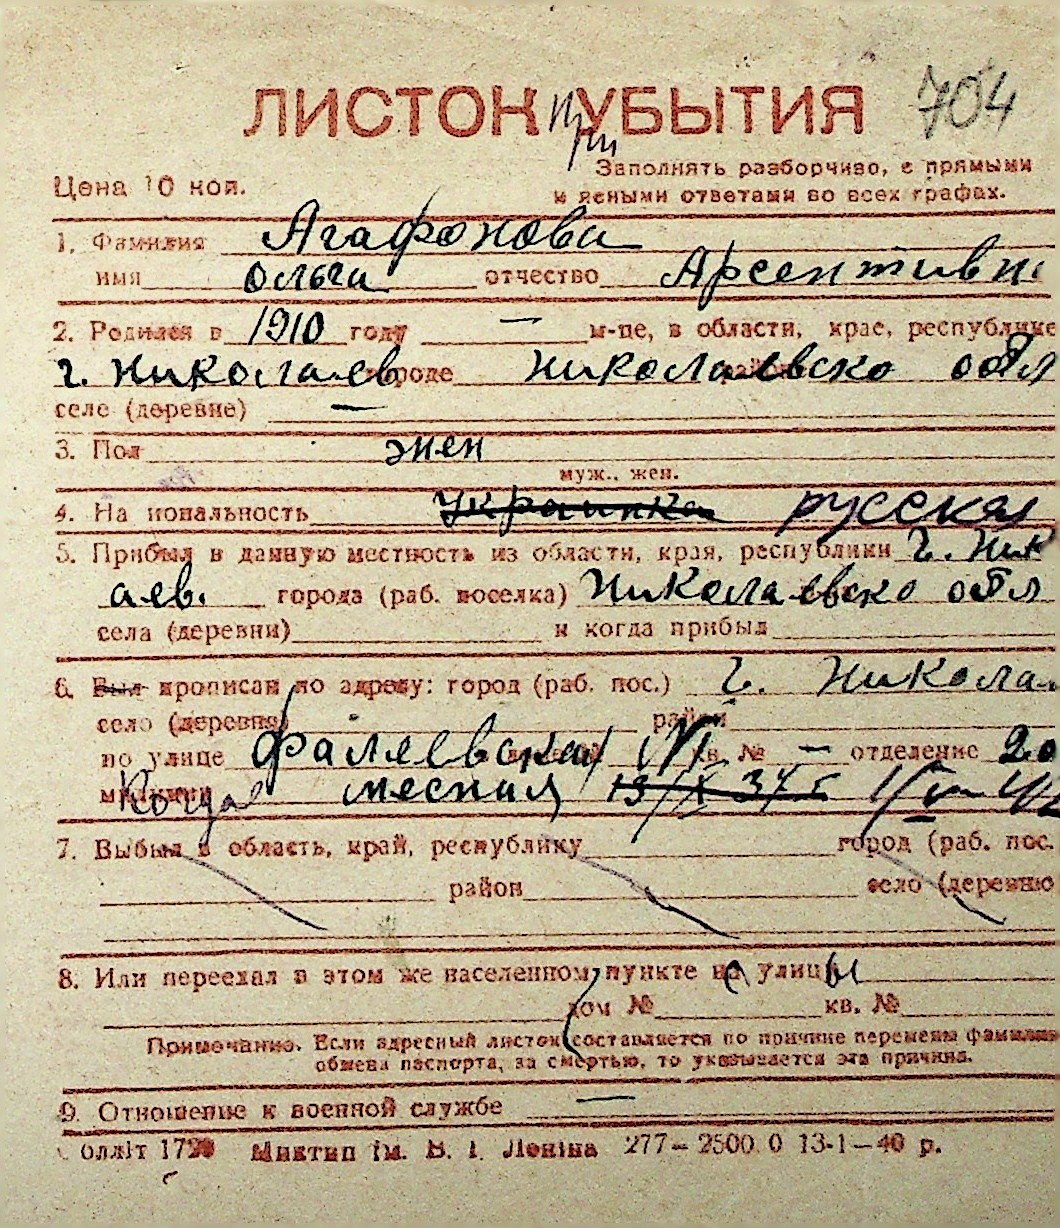 ЛИСТОК при УБЫТИЯ 704
Заполнять разборчиво, с прямыми
Цена 10 коп. и ясными ответами во всех графах.
1. Фамилия Агафонова
имя Ольга отчество Арсентивн
2. Родился в 1910 году — м-це, в области, крае, республике
г. Николаев городе Николаевско обл
селе (деревне) —
3. Пол жен
муж., жен.
4. На иональность Украинка русская
5. Прибыл в данную местность из области, края, республики г. Ник
аев. города (раб. поселка) Николаевско обл
села (деревни) и когда прибыл
6. Был прописан по адресу: город (раб. пос.) г. Никола
село (деревня) район
по улице Фалеевская кв. № — отделение 20
милиции Когда местная
7. Выбыл в область, край, республику город (раб. пос.
район село (деревню
8. Или переехал в этом же населенном пункте с улицы
дом № кв. №
Примечание. Если адресный листок составляется по причине перемены фамилии
обмена паспорта, за смертью, то указывается эта причина.
9. Отношение к военной службе —
олліт 1720 Миктип ім. В. І. Леніна 277—2500.0 13-1—40 р.